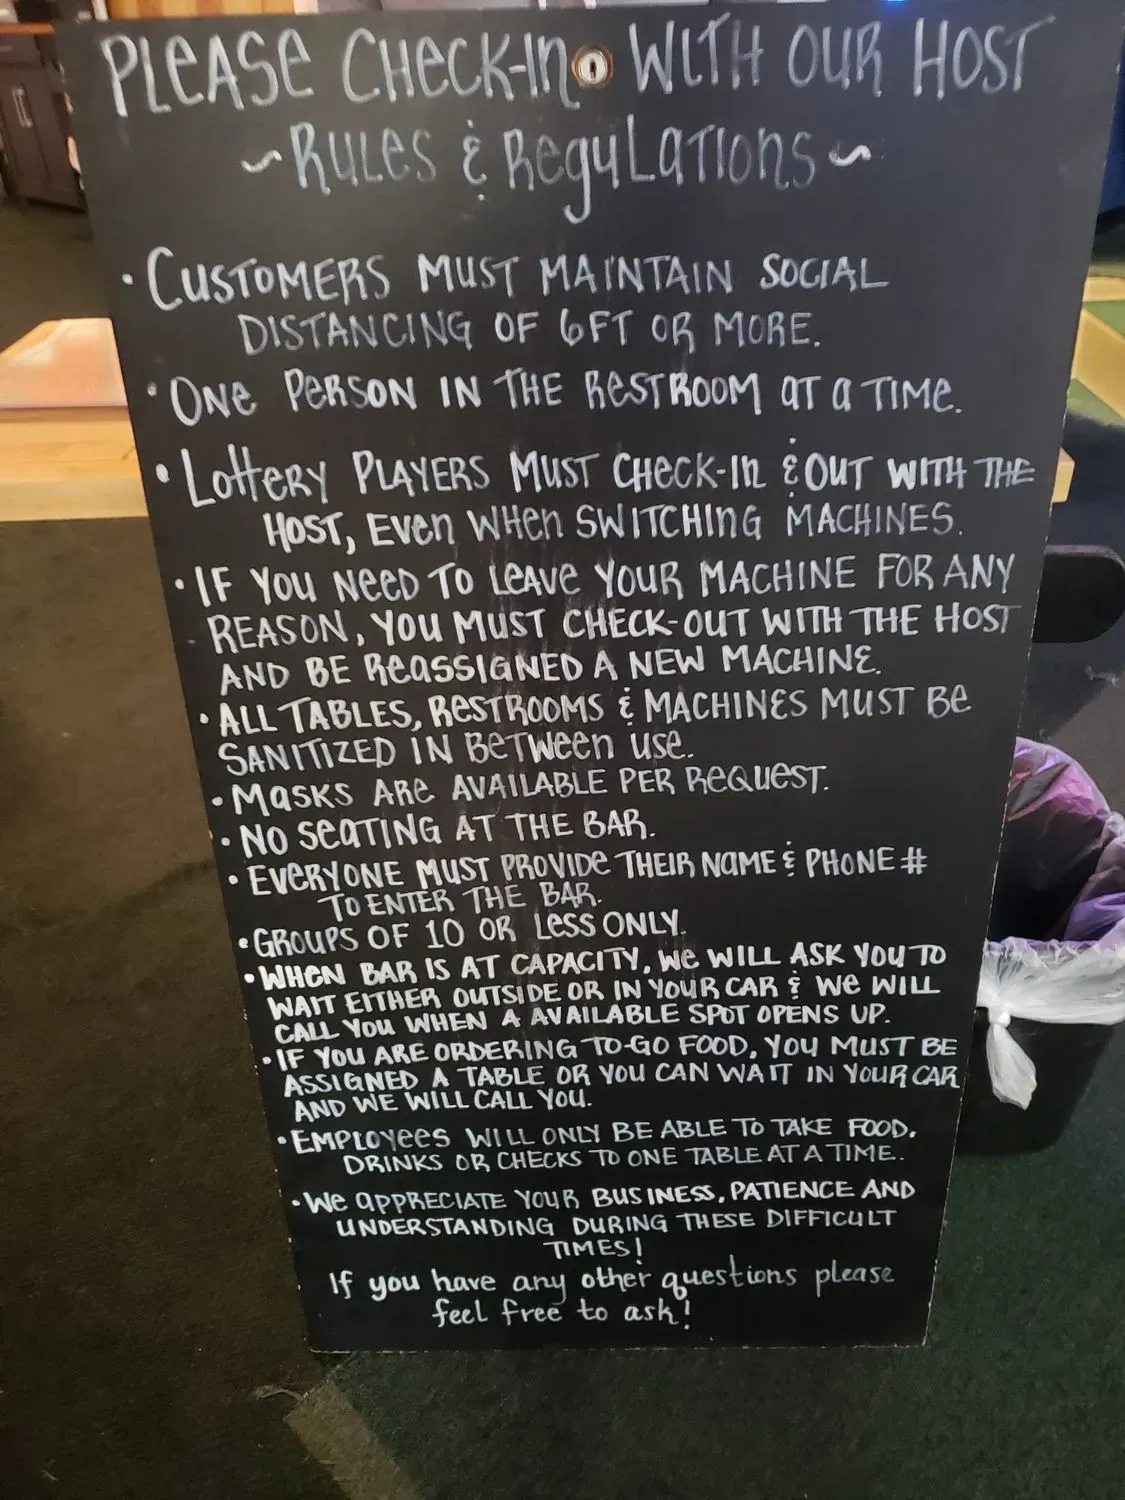 PLEASE CHECK-In WITH OUR HOST
~RULES & REGULATIONS~
• CUSTOMERS MUST MAINTAIN SOCIAL
DISTANCING OF 6FT OR MORE.
• ONE PERSON IN THE RESTROOM AT A TIME.
• LOTTERY PLAYERS MUST CHECK-In & OUT WITH THE
HOST, EVEN WHEN SWITCHING MACHINES.
• IF YOU NEED TO LEAVE YOUR MACHINE FOR ANY
REASON, YOU MUST CHECK-OUT WITH THE HOST
AND BE REASSIGNED A NEW MACHINE.
• ALL TABLES, RESTROOMS & MACHINES MUST BE
SANITIZED IN BETWEEN USE.
• MASKS ARE AVAILABLE PER REQUEST.
• NO SEATING AT THE BAR.
• EVERYONE MUST PROVIDE THEIR NAME & PHONE #
TO ENTER THE BAR.
• GROUPS OF 10 OR LESS ONLY.
• WHEN BAR IS AT CAPACITY, WE WILL ASK YOU TO
WAIT EITHER OUTSIDE OR IN YOUR CAR & WE WILL
CALL YOU WHEN A AVAILABLE SPOT OPENS UP.
• IF YOU ARE ORDERING TO-GO FOOD, YOU MUST BE
ASSIGNED A TABLE OR YOU CAN WAIT IN YOUR CAR
AND WE WILL CALL YOU.
• EMPLOYEES WILL ONLY BE ABLE TO TAKE FOOD,
DRINKS OR CHECKS TO ONE TABLE AT A TIME.
• WE APPRECIATE YOUR BUSINESS, PATIENCE AND
UNDERSTANDING DURING THESE DIFFICULT
TIMES!
If you have any other questions please
feel free to ask!